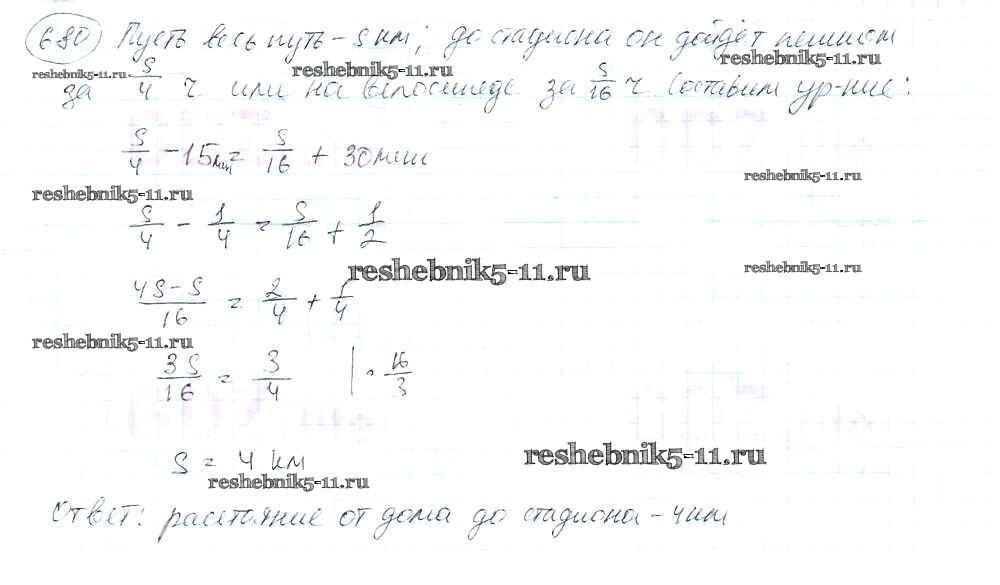 680) Пусть весь путь – S км; до стадиона он дойдёт пешком
reshebnik5-11.ru reshebnik5-11.ru reshebnik5-11.ru
за S/4 ч или на велосипеде за S/16 ч Составим ур-ние:
S/4 – 15мин = S/16 + 30мин
reshebnik5-11.ru reshebnik5-11.ru
S/4 – 1/4 = S/16 + 1/2
reshebnik5-11.ru reshebnik5-11.ru
4S–S/16 = 2/4 + 1/4
reshebnik5-11.ru
3S/16 = 3/4 | · 16/3
S = 4 км
reshebnik5-11.ru
reshebnik5-11.ru
Ответ: расстояние от дома до стадиона – 4км